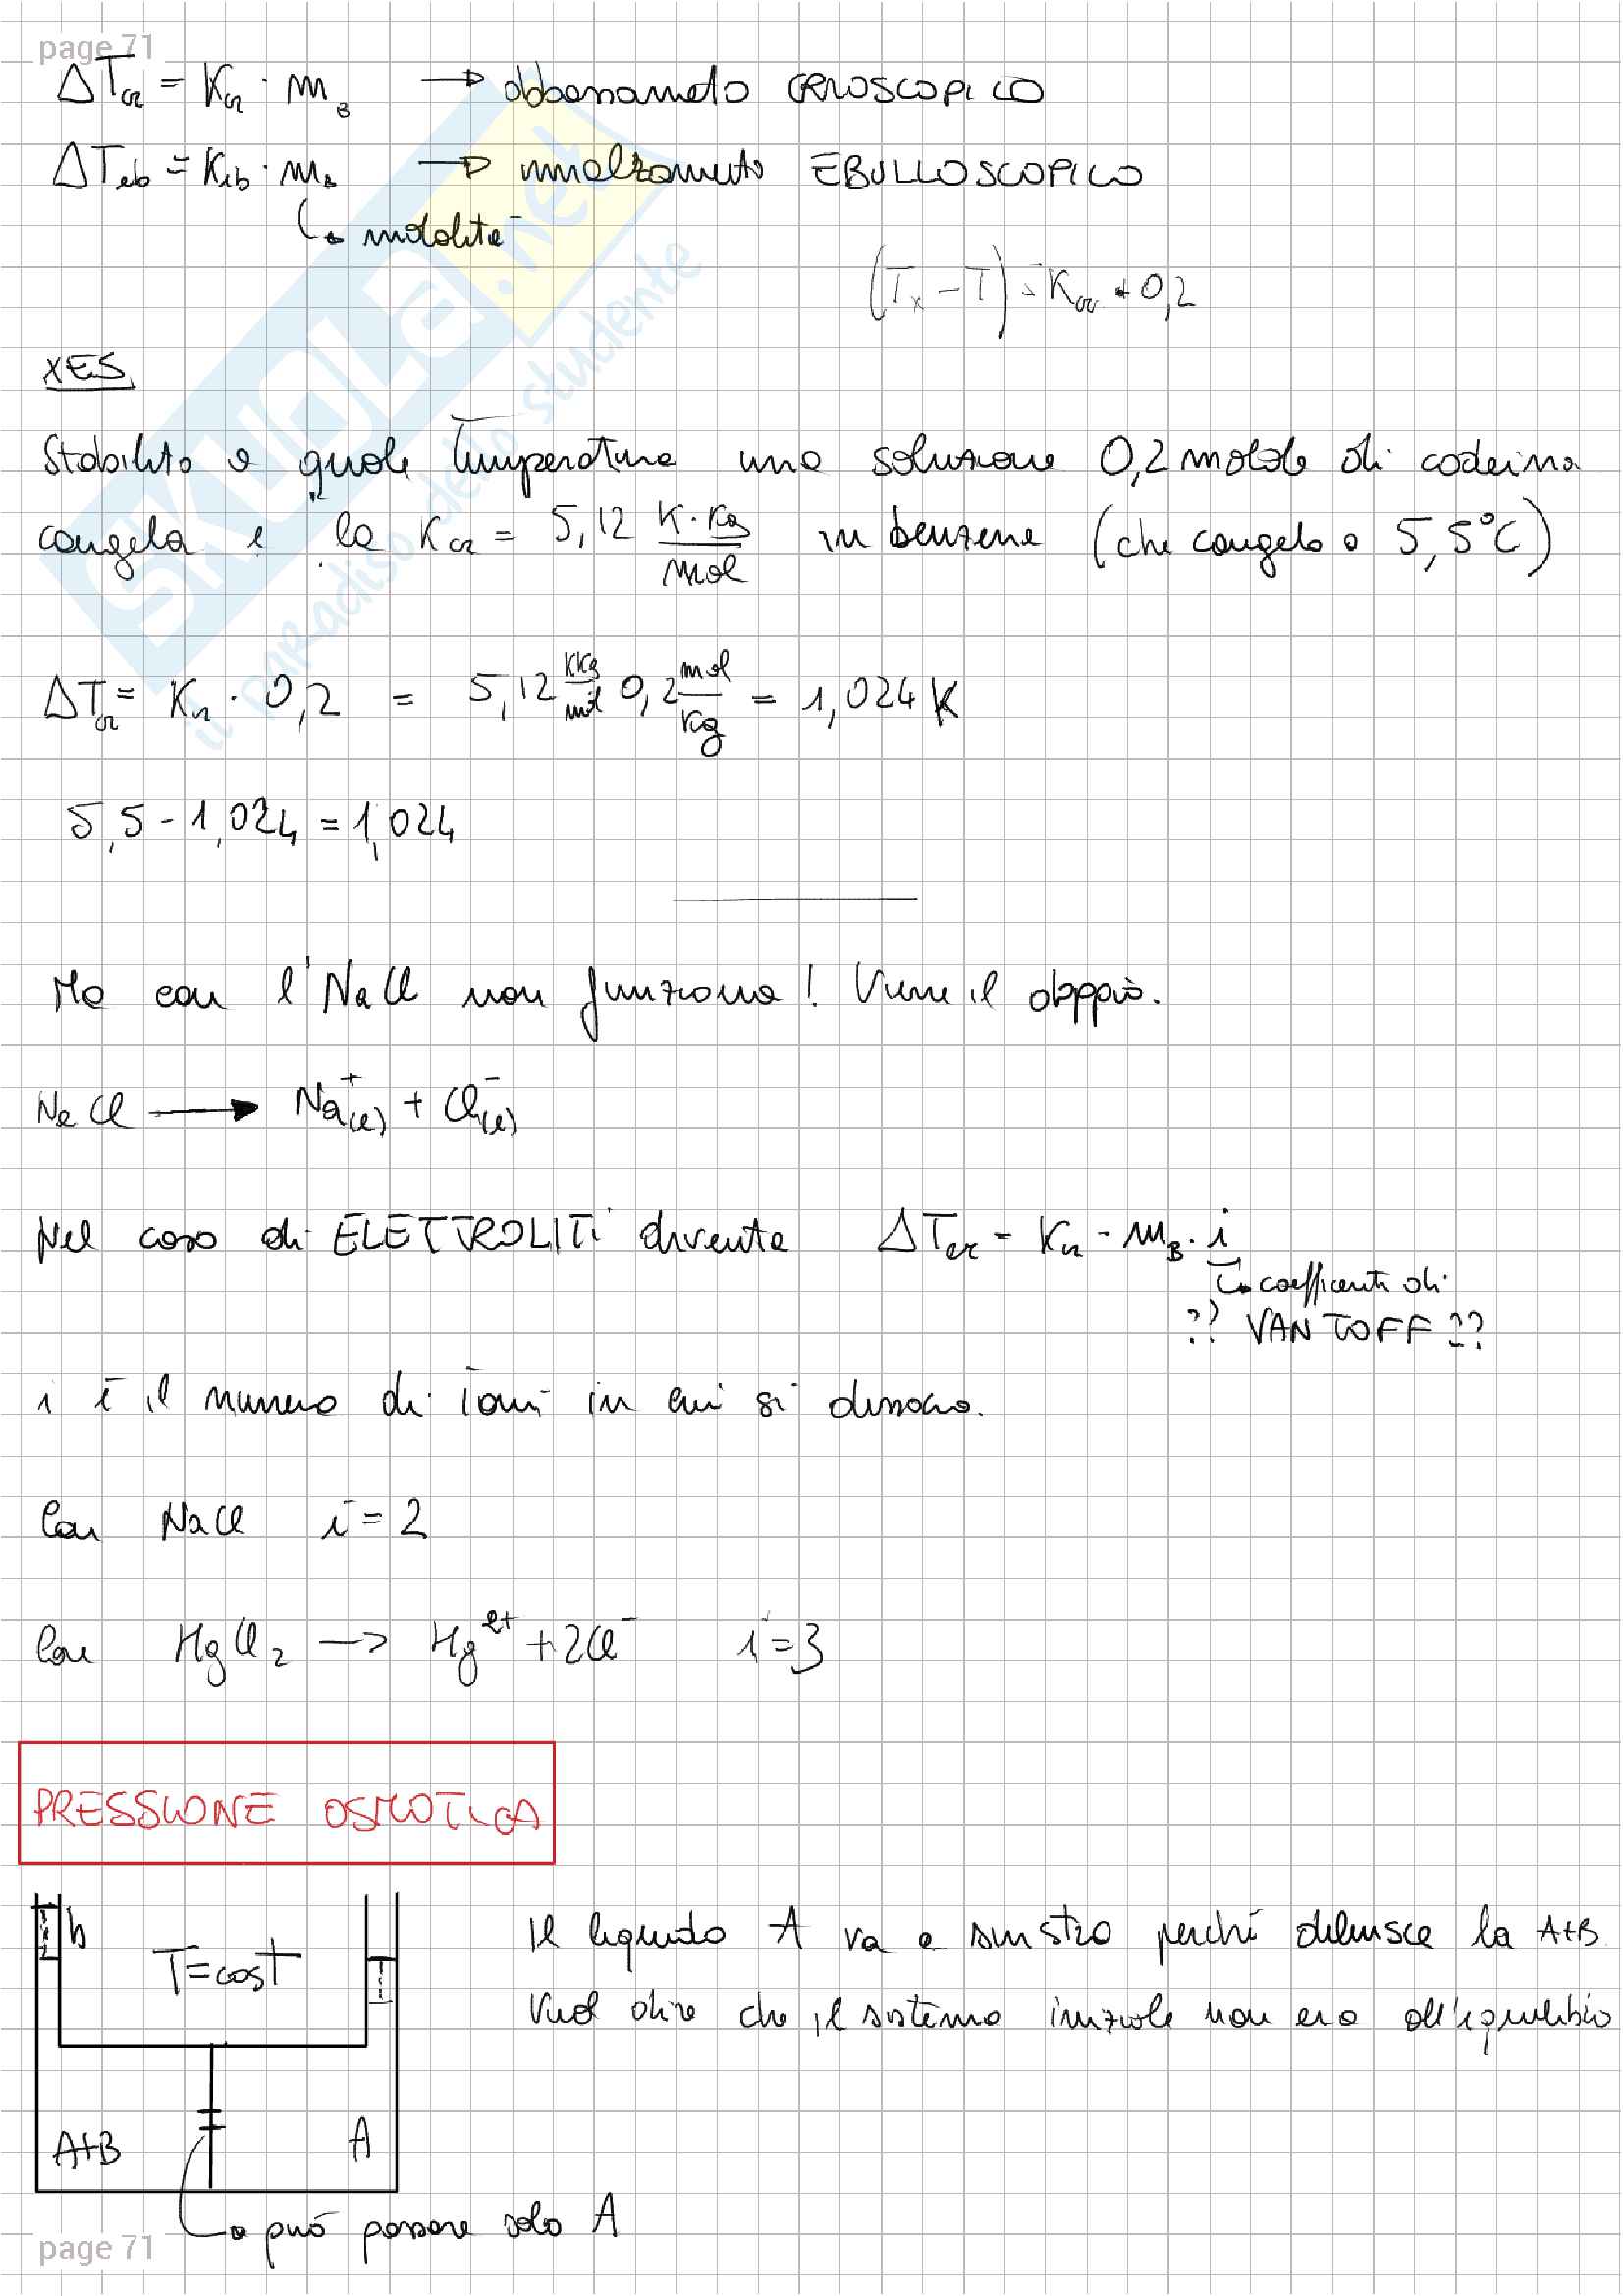 page 71
ΔTcr = Kcr · mB → abbassamento CRIOSCOPICO
ΔTeb = Keb · mB → innalzamento EBULLOSCOPICO
↳ molalità
(Tx - T) = Kcr · 0,2
XES
Stabilito a quale temperatura una soluzione 0,2 molale di codeina
congela e la Kcr = 5,12 K·Kg/mol in benzene (che congela a 5,5°C)
ΔTcr = Kcr · 0,2 = 5,12 KKg/mol 0,2 mol/Kg = 1,024 K
5,5 - 1,024 = 1,024
Ma con l'NaCl non funziona! Viene il doppio.
NaCl → Na+(l) + Cl-(l)
Nel caso di ELETTROLITI diventa ΔTcr = Kcr - mB · i
↳ coefficiente di
?? VAN TOFF ??
i è il numero di ioni in cui si dissocia.
Con NaCl i = 2
Con HgCl2 → Hg2+ + 2Cl- i = 3
PRESSIONE OSMOTICA
h
T = cost
Il liquido A va a sinistra perché diluisce la A+B
Vuol dire che il sistema iniziale non era all'equilibrio
A+B
A
può passare solo A
page 71
SKUOLA.net
il paradiso dello studente